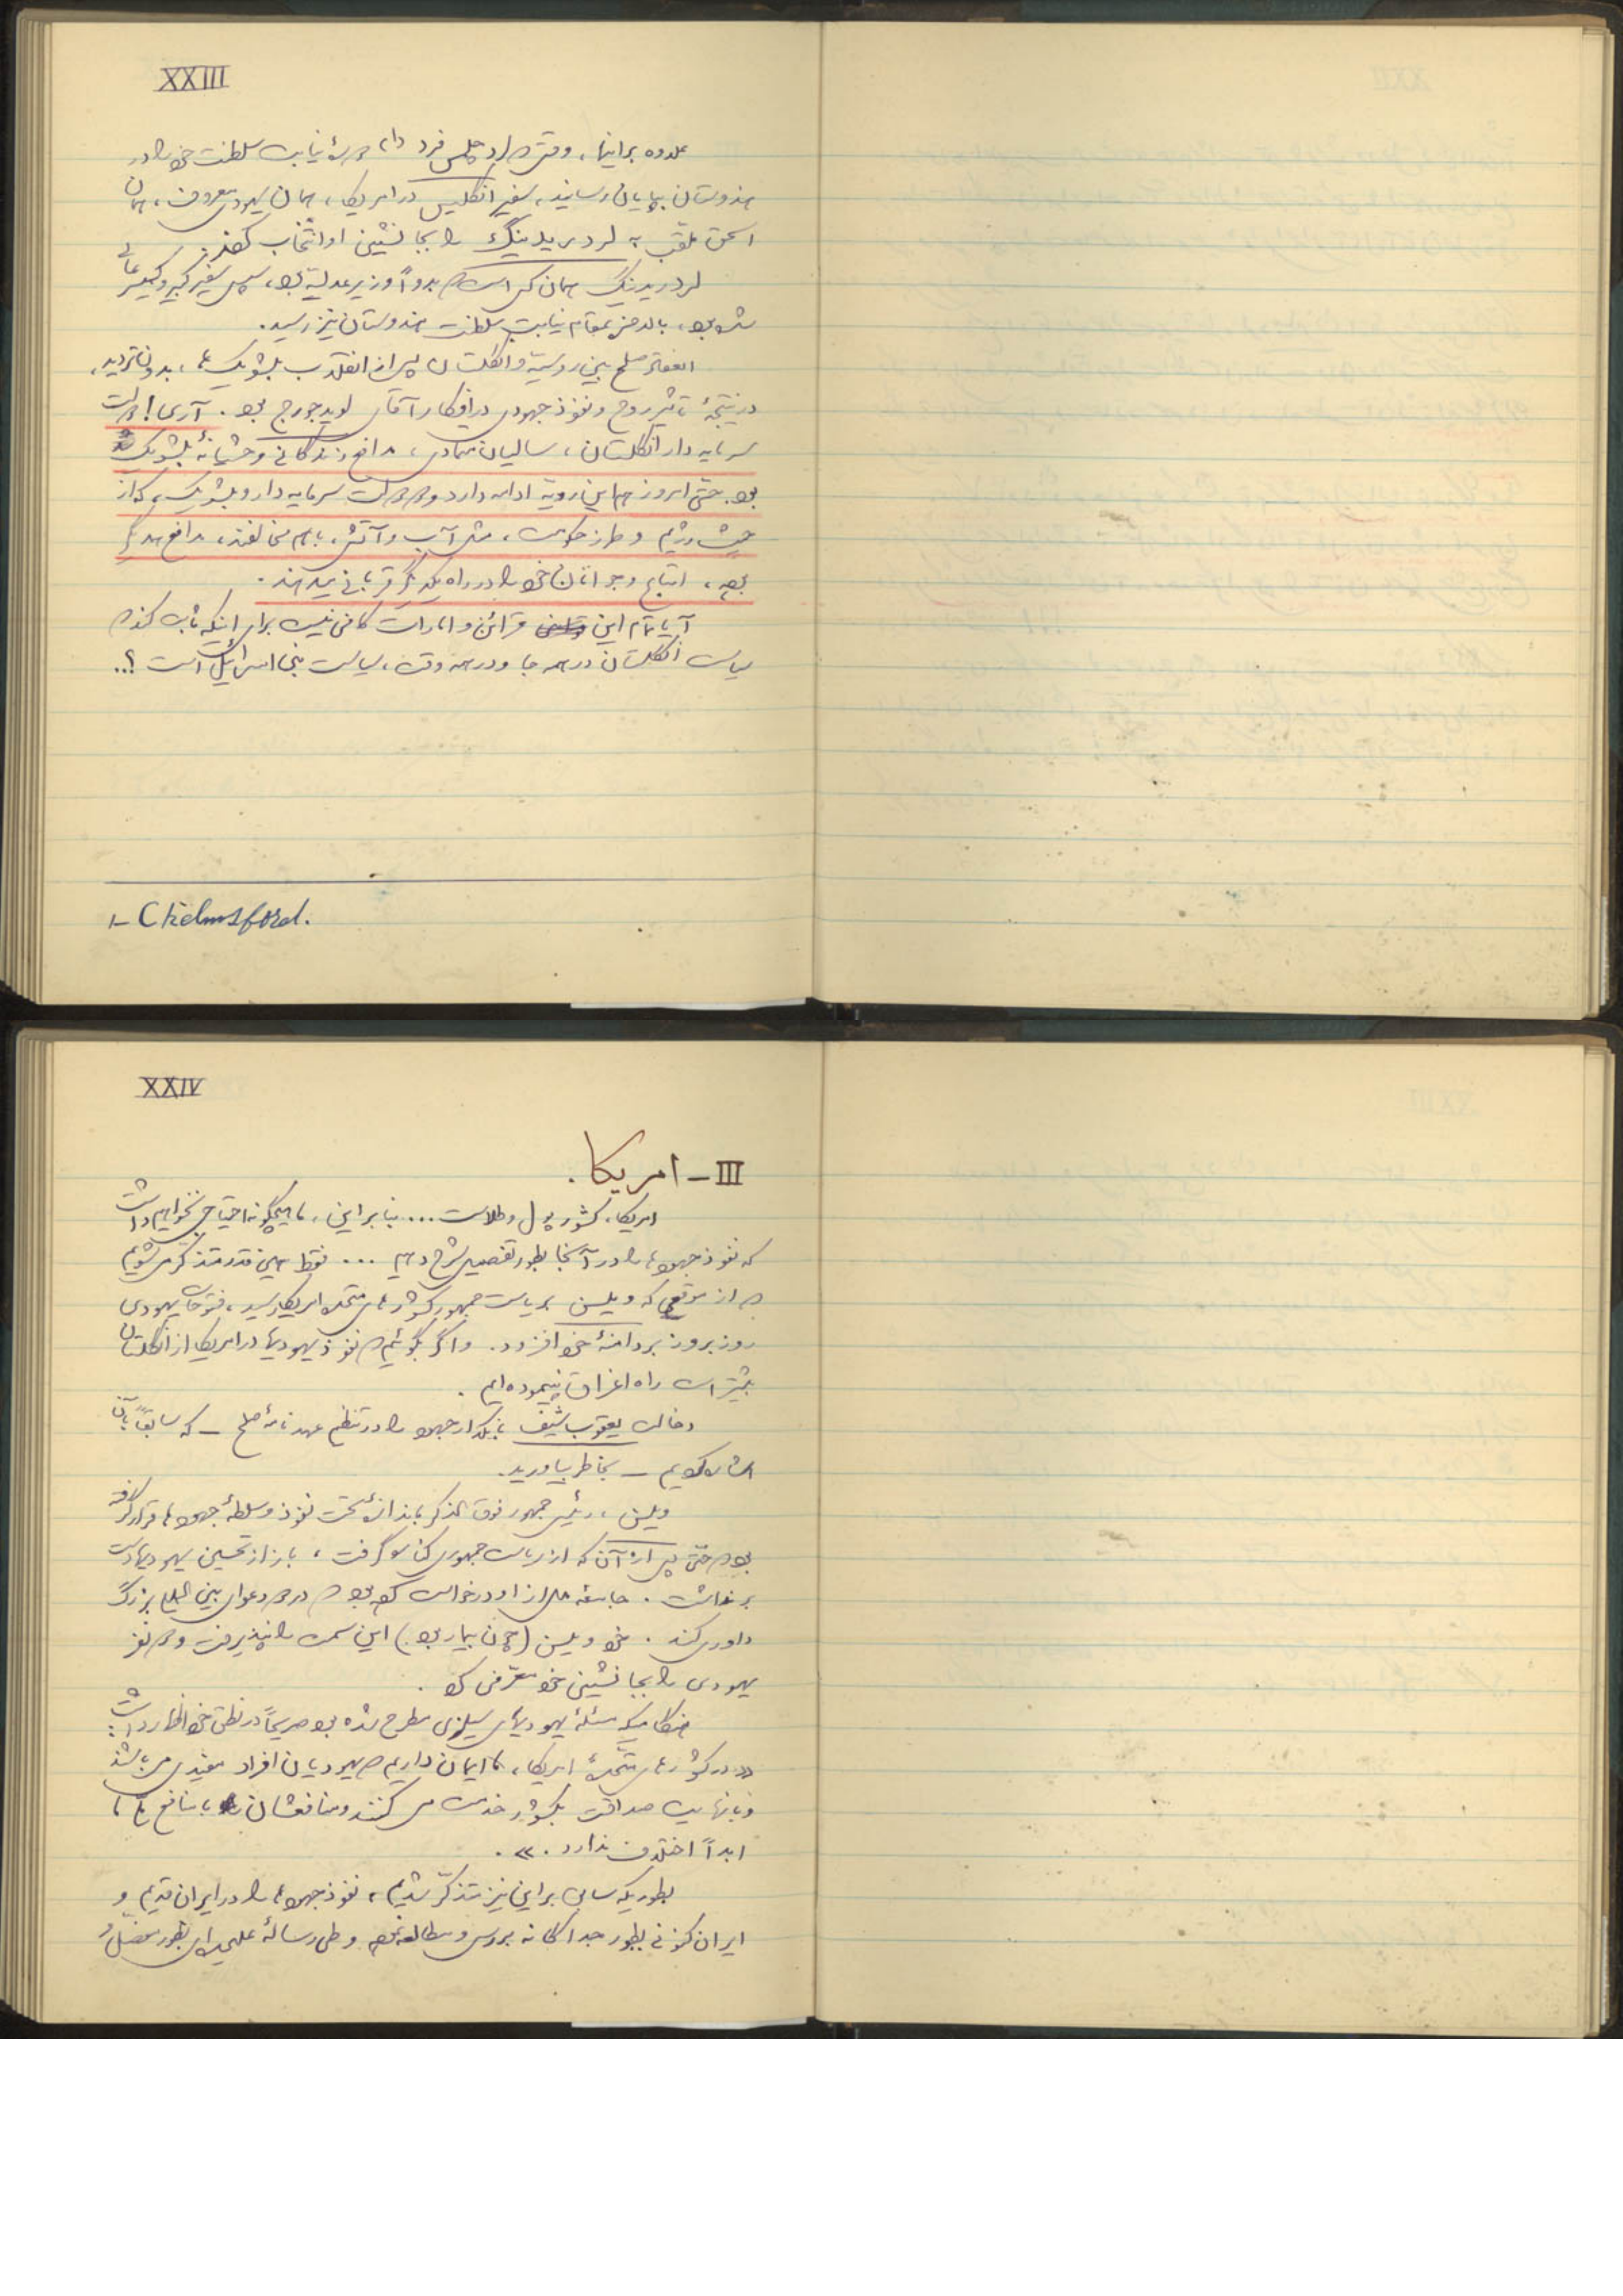 XXIII
علاوه براینها، وقتی که لرد چلمس فرد دورهٔ نیابت سلطنت خود را در
هندوستان بپایان رسانید، سفیر انگلیس در امریکا، همان یهودی معروف، همان
اسحق ملقب به لرد ریدینگ را بجانشین او انتخاب کردند.
لرد ریدینگ همان کسی است که بدواً وزیر عدلیه بود، سپس سفیر کبیر و کمیسر عالی
شده بود، بالاخره بمقام نیابت سلطنت هندوستان نیز رسید.
انعقاد صلح بین روسیه و انگلستان پس از انقلاب بلشویک ها، بدون تردید،
در نتیجهٔ تأثیر روح و نفوذ جهودی در افکار آقای لوید جورج بود. آری! دولت
سرمایه دار انگلستان، سالیان متمادی، مدافع زندگانی وحشیانهٔ بلشویک ها
بود. حتی امروز هم این رویه ادامه دارد و دو دولت سرمایه دار و بلشویک، که از
حیث رژیم و طرز حکومت، مثل آب و آتش، با هم مخالفند، مدافع همدیگر
بوده، اتباع و جوانان خود را در راه یکدیگر قربانی میدهند.
آیا تمام این قرائن و امارات کافی نیست برای اینکه ثابت کند که
سیاست انگلستان در همه جا و در همه وقت، سیاست بنی اسرائیل است؟..
1- Chelmsford.
XXIV
III - امریکا.
امریکا، کشور پول و طلاست... بنابر این، ما هیچگونه احتیاجی نخواهیم داشت
که نفوذ جهودها را در آنجا بطور تفصیل شرح دهیم ... فقط همین قدر متذکر می شویم
که از موقعی که ویلسن بریاست جمهور کشورهای متحده امریکا رسید، فتوحات یهودی
روز بروز بر دامنهٔ خود افزود. و اگر بگوئیم که نفوذ یهودیها در امریکا از انگلستان
بیشتر است راه اغراق نپیموده ایم.
دخالت یعقوب شیف بانکدار جهود را در تنظیم عهدنامهٔ صلح - که سابقاً بآن
اشاره کردیم - بخاطر بیاورید.
ویلسن، رئیس جمهور فوق الذکر باندازه ای تحت نفوذ و سلطهٔ جهودها قرار گرفته
بود که حتی پس از آن که از ریاست جمهوری کناره گرفت، باز از تحسین یهودیها دست
برنداشت. جامعه ملل از او درخواست کرده بود که در دو دعوای بین المللی بزرگ
داوری کند. خود ویلسن (چون بیمار بود) این سمت را نپذیرفت و دو نفر
یهودی را بجانشینی خود معرفی کرد.
هنگامیکه مسئله یهودیهای سیلزی مطرح شده بود صریحاً در نطق خود اظهار داشت:
«در کشورهای متحدهٔ امریکا، ما ایمان داریم که یهودیان افراد مفیدی می باشند
و با نهایت صداقت بکشور خدمت می کنند و منافعشان با منافع ما
ابداً اختلاف ندارد.».
بطوریکه سابق براین نیز متذکر شدیم، نفوذ جهودها را در ایران قدیم و
ایران کنونی بطور جداگانه بررسی و مطالعه نموده و طی رسالهٔ علیحده ای بطور مفصل و